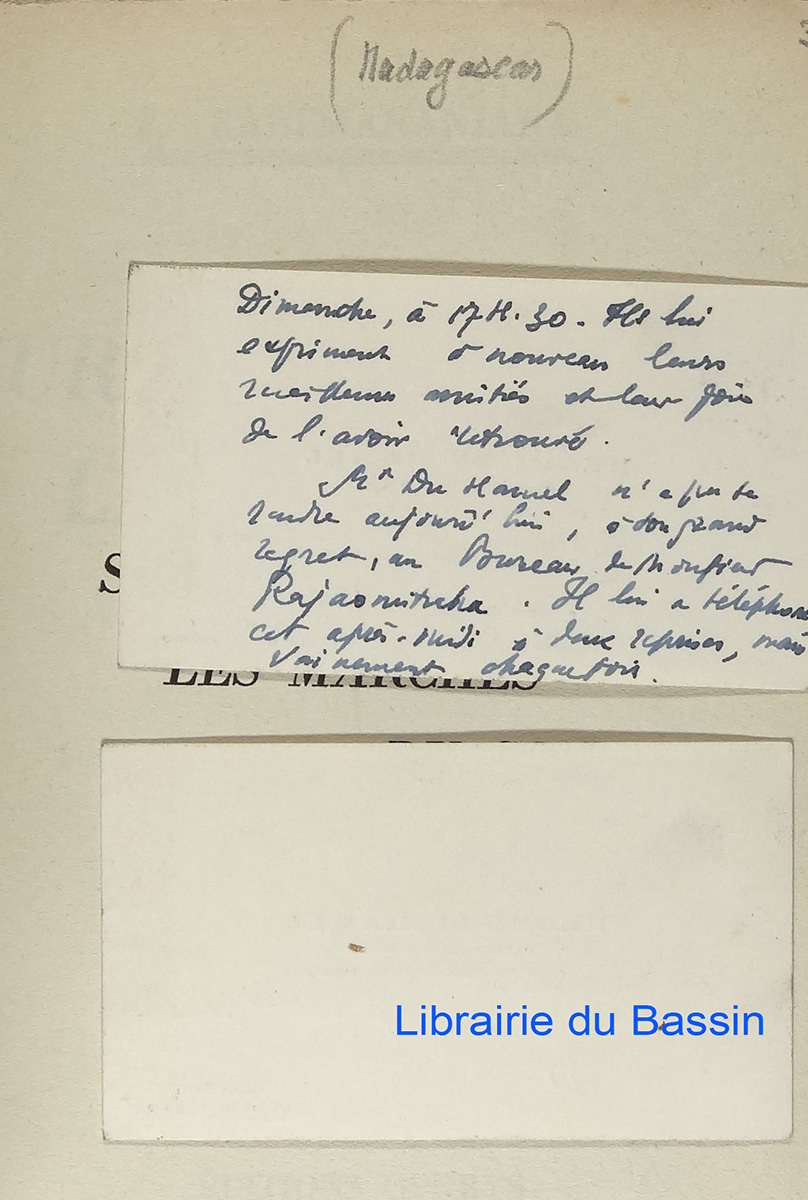 (Madagascar)
Dimanche, à 17 H. 30. Ils lui
expriment à nouveau leurs
meilleures amitiés et leur joie
de l'avoir retrouvé.
Mr Du Hamel n'a pu se
rendre aujourd'hui, à son grand
regret, au Bureau de Monsieur
Il lui a téléphoné
cet après-midi à deux reprises, mais
vainement chaque fois.
S
LES MARCHES
Librairie du Bassin